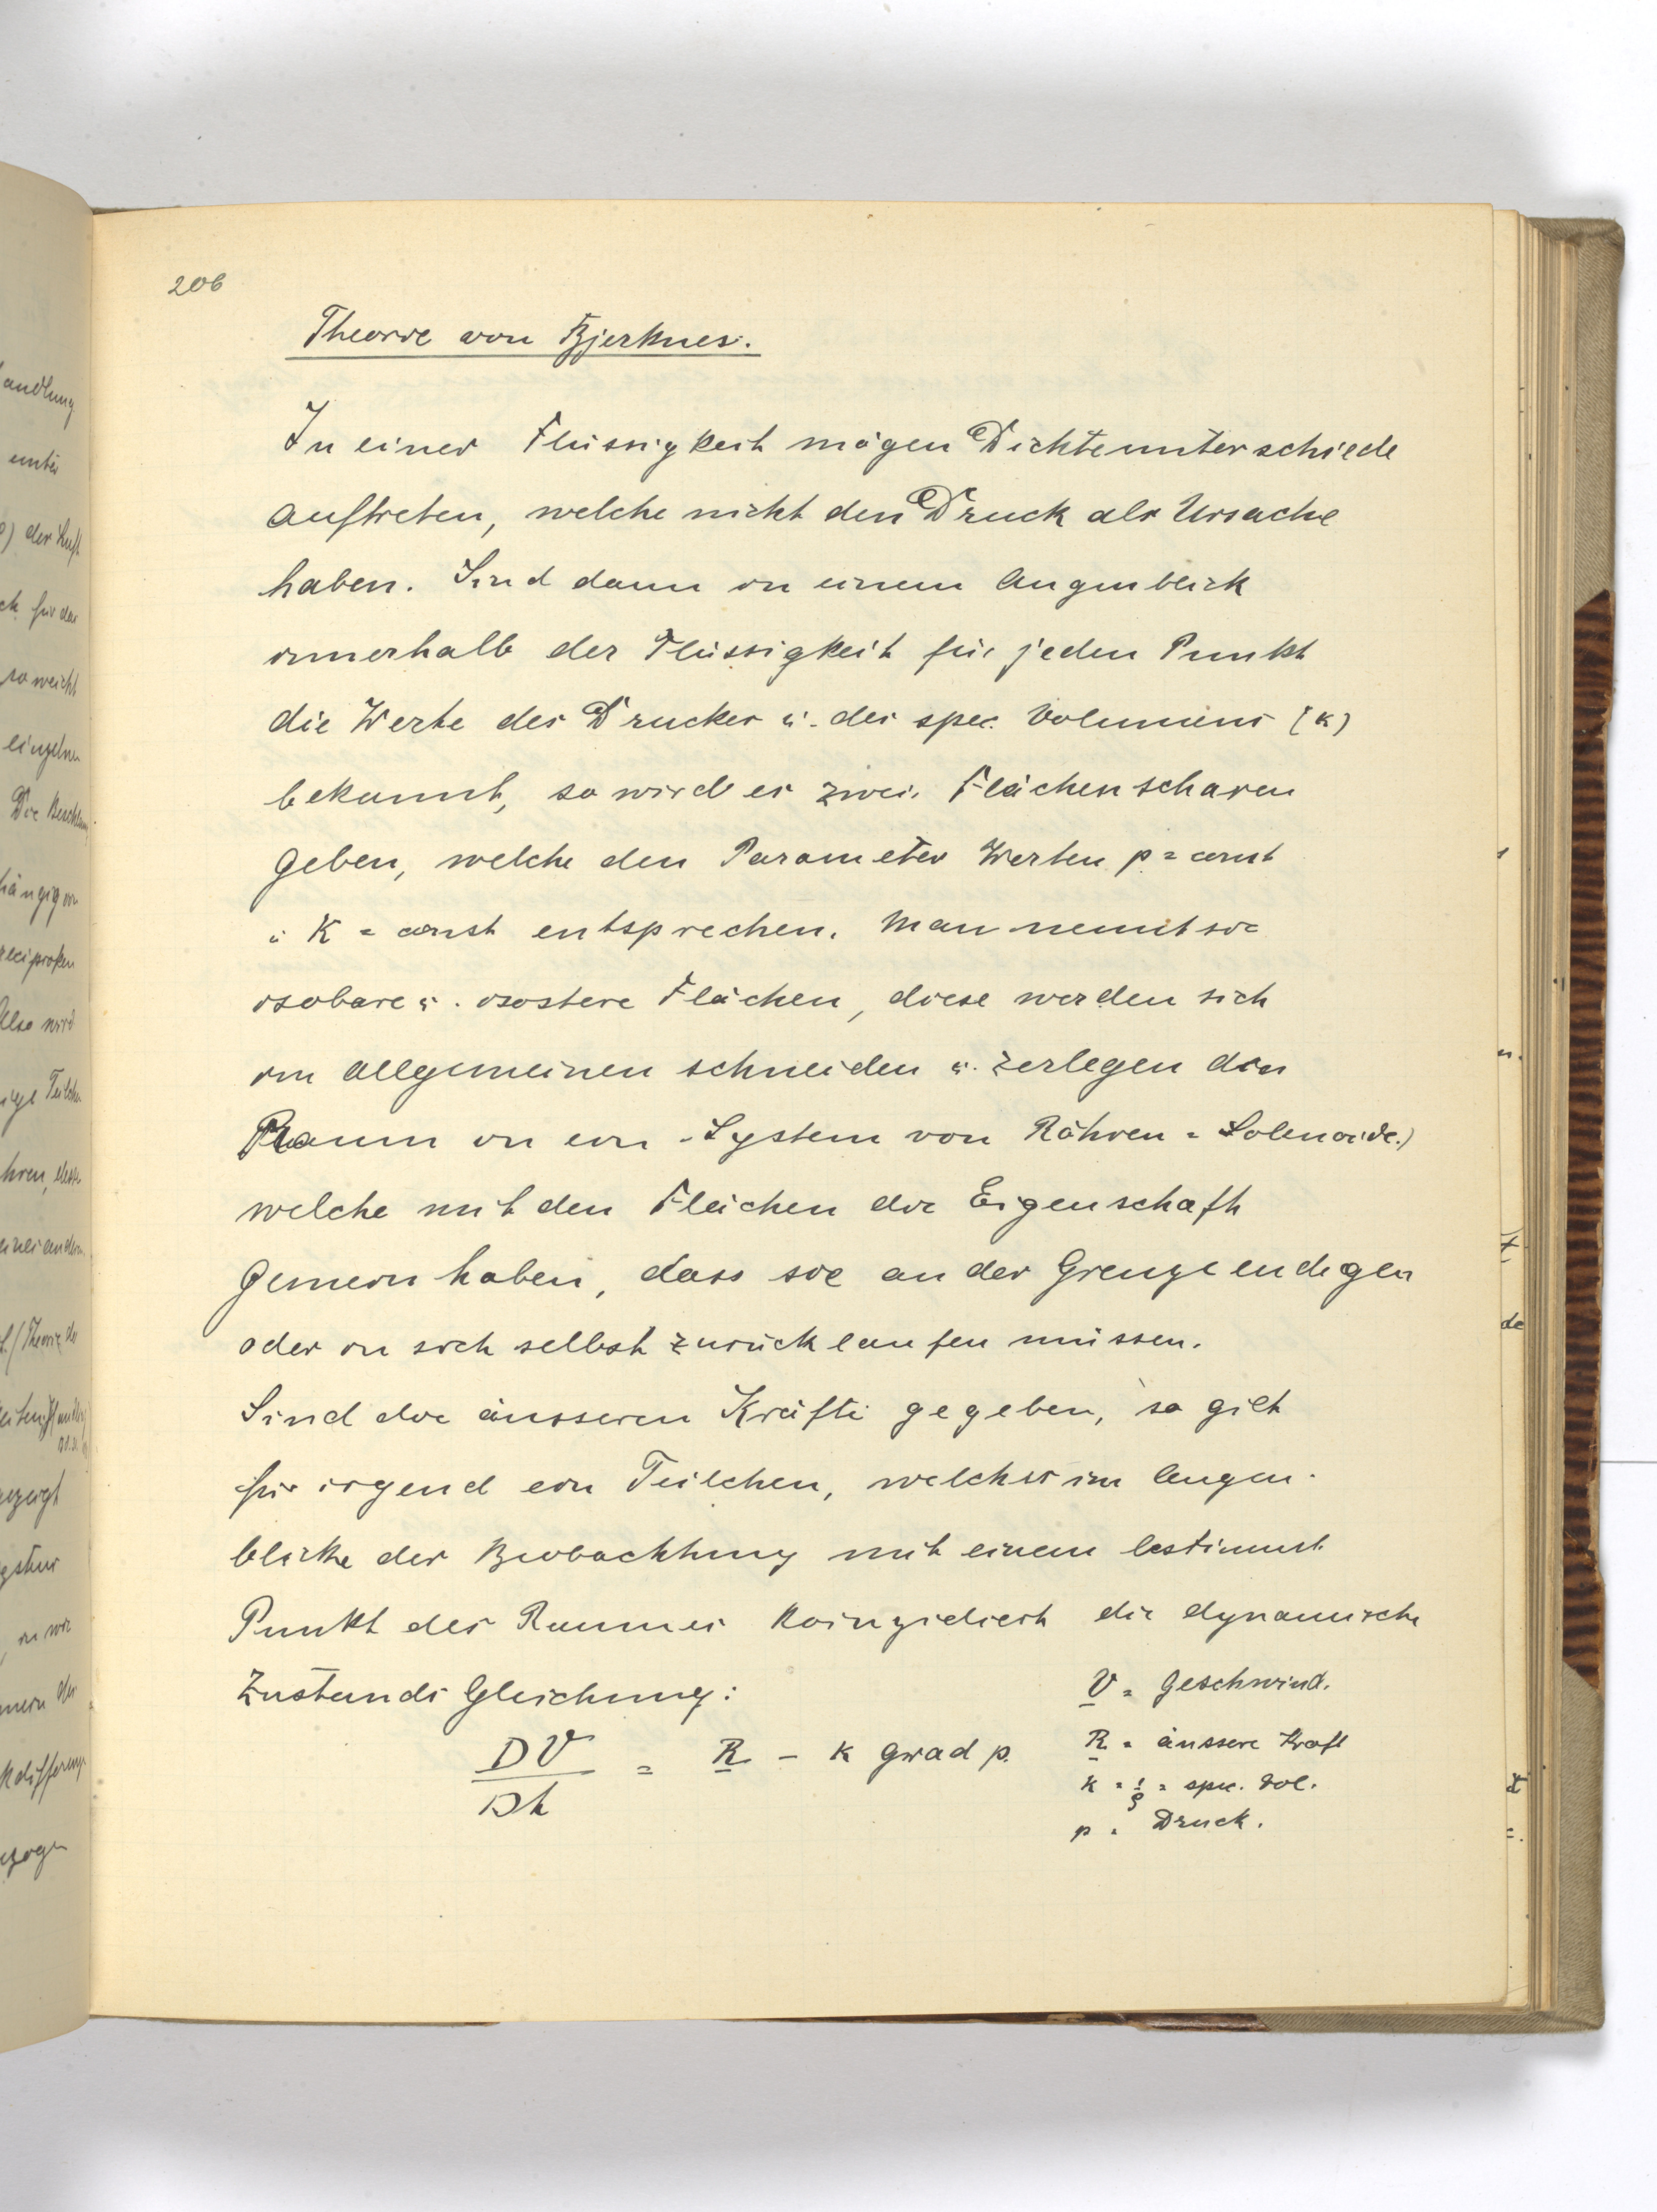 206
Theorie von Bjerknes.
In einer Flüssigkeit mögen Dichteunterschiede
auftreten, welche nicht den Druck als Ursache
haben. Sind dann in einem Augenblick
innerhalb der Flüssigkeit für jeden Punkt
die Werte des Druckes u. des spec. Volumens (k)
bekannt, so wird es zwei Flächenscharen
geben, welche den Parameter Werten p = const
u K = const entsprechen. Man nennt sie
isobare u. isostere Flächen, diese werden sich
im allgemeinen schneiden u. zerlegen den
Raum in ein System von Röhren = Solenoide.)
welche mit den Flächen die Eigenschaft
gemein haben, dass sie an der Grenze endigen
oder in sich selbst zurücklaufen müssen.
Sind die äusseren Kräfte gegeben, so gilt
für irgend ein Teilchen, welches im Augen-
blicke der Beobachtung mit einem bestimmt.
Punkt des Raumes koinzidiert die dynamische
Zustands Gleichung:
V = Geschwind.
DV/Dt = R – k grad p.
R = äussere Kraft
k = 1/ρ = spec. Vol.
p = Druck.
andlung
unter
der Luft
für das
so weicht
einzelnen
Die
hängig von
reciproken
Also wird
Teilchen
einer andern
(Theorie der
gezeigt
in wir
der